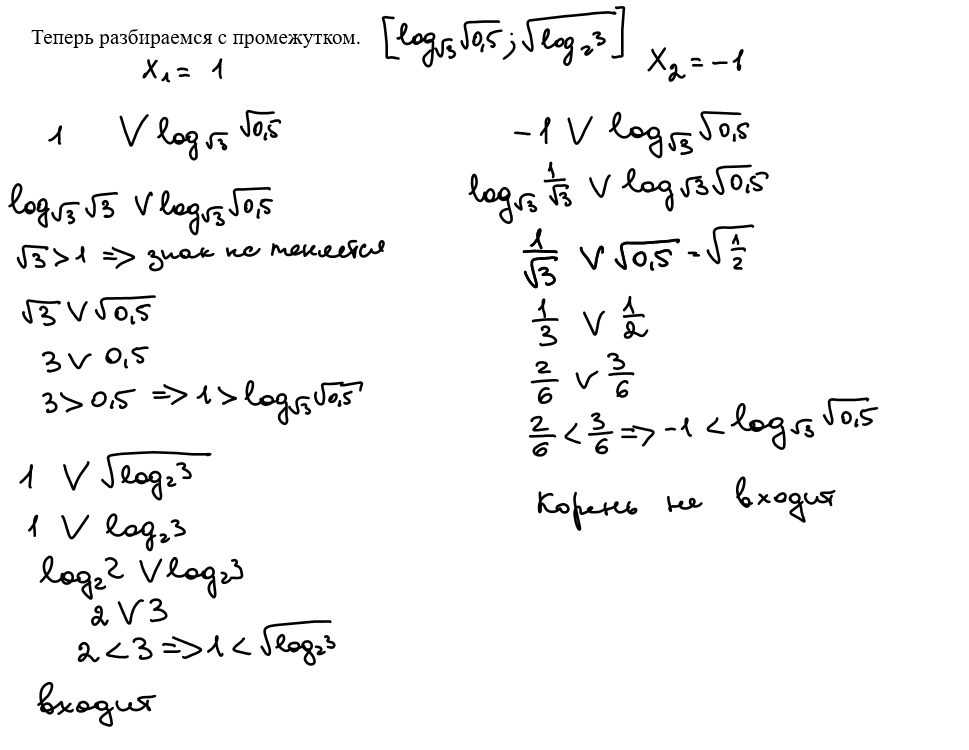 Теперь разбираемся с промежутком. [log_√3 √0,5 ; √(log_2 3)]
x₁ = 1
1 V log_√3 √0,5
log_√3 √3 V log_√3 √0,5
√3 > 1 => знак не меняется
√3 V √0,5
3 V 0,5
3 > 0,5 => 1 > log_√3 √0,5
1 V √(log_2 3)
1 V log_2 3
log_2 2 V log_2 3
2 V 3
2 < 3 => 1 < √(log_2 3)
входит
x₂ = -1
-1 V log_√3 √0,5
log_√3 1/√3 V log_√3 √0,5
1/√3 V √0,5 = √(1/2)
1/3 V 1/2
2/6 V 3/6
2/6 < 3/6 => -1 < log_√3 √0,5
Корень не входит